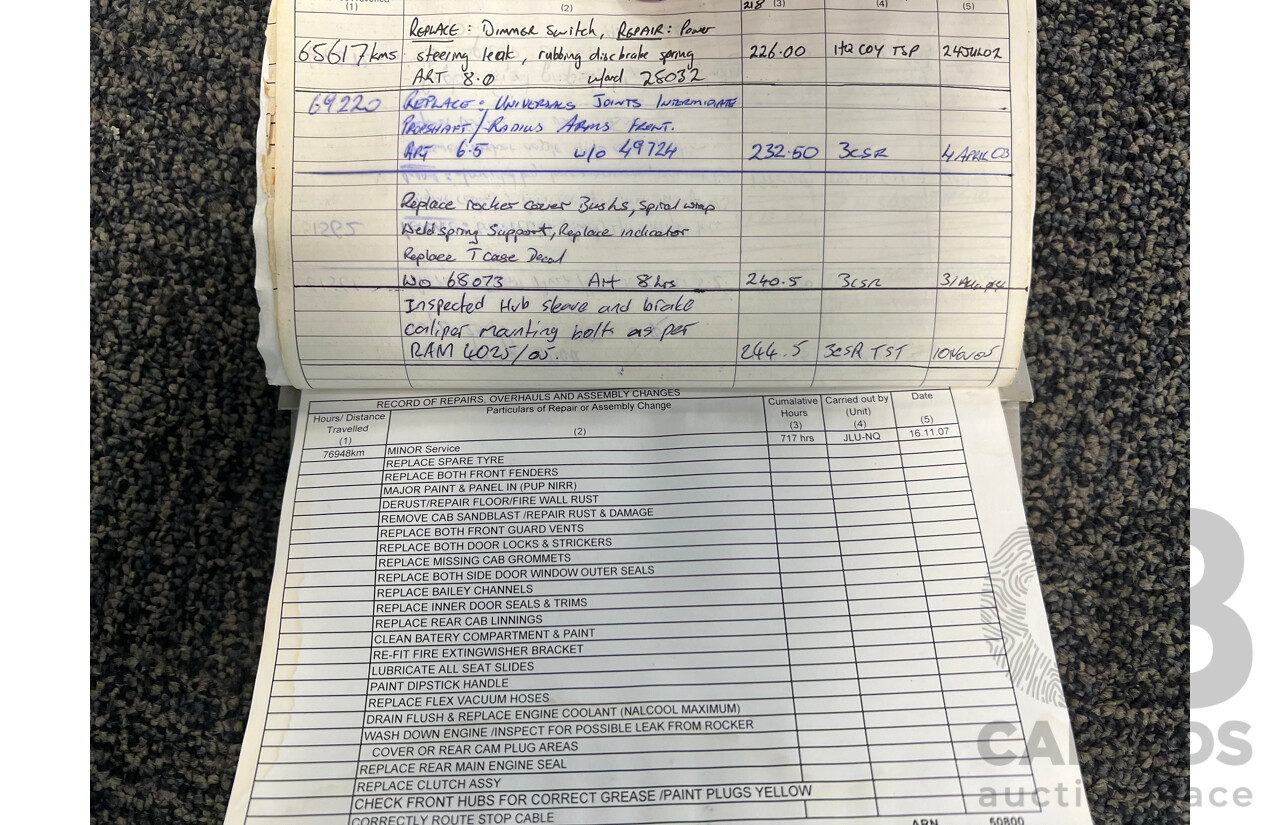 (1) (2) 218 (3) (4) (5)
REPLACE: Dimmer switch, REPAIR: Power
65617kms steering leak, rubbing disc brake spring 226.00 24JUL02
ART 8.0 w/ord 28032
69220 REPLACE: UNIVERSALS JOINTS INTERMEDIATE
PROPSHAFT/RADIUS ARMS FRONT.
ART 6.5 w/o 49724 232.50 3CSR 4 APRIL 03
Replace rocker cover Bushs, Spiral wrap
Weld spring Support, Replace indicator
Replace T case Decal
WO 68073 Art 8hrs 240.5 3CSR
Inspected Hub sleave and brake
caliper mounting bolts as per
RAM 4025/05. 244.5 3CSR TST 10Nov05
RECORD OF REPAIRS, OVERHAULS AND ASSEMBLY CHANGES
Hours/ Distance Travelled (1) Particulars of Repair or Assembly Change (2) Cumalative Hours (3) Carried out by (Unit) (4) Date (5)
76948km MINOR Service 717 hrs JLU-NQ 16.11.07
REPLACE SPARE TYRE
REPLACE BOTH FRONT FENDERS
MAJOR PAINT & PANEL IN (PUP NIRR)
DERUST/REPAIR FLOOR/FIRE WALL RUST
REMOVE CAB SANDBLAST /REPAIR RUST & DAMAGE
REPLACE BOTH FRONT GUARD VENTS
REPLACE BOTH DOOR LOCKS & STRICKERS
REPLACE MISSING CAB GROMMETS
REPLACE BOTH SIDE DOOR WINDOW OUTER SEALS
REPLACE BAILEY CHANNELS
REPLACE INNER DOOR SEALS & TRIMS
REPLACE REAR CAB LINNINGS
CLEAN BATERY COMPARTMENT & PAINT
RE-FIT FIRE EXTINGWISHER BRACKET
LUBRICATE ALL SEAT SLIDES
PAINT DIPSTICK HANDLE
REPLACE FLEX VACUUM HOSES
DRAIN FLUSH & REPLACE ENGINE COOLANT (NALCOOL MAXIMUM)
WASH DOWN ENGINE /INSPECT FOR POSSIBLE LEAK FROM ROCKER
COVER OR REAR CAM PLUG AREAS
REPLACE REAR MAIN ENGINE SEAL
REPLACE CLUTCH ASSY
CHECK FRONT HUBS FOR CORRECT GREASE /PAINT PLUGS YELLOW
CORRECTLY ROUTE STOP CABLE
ARN 50800